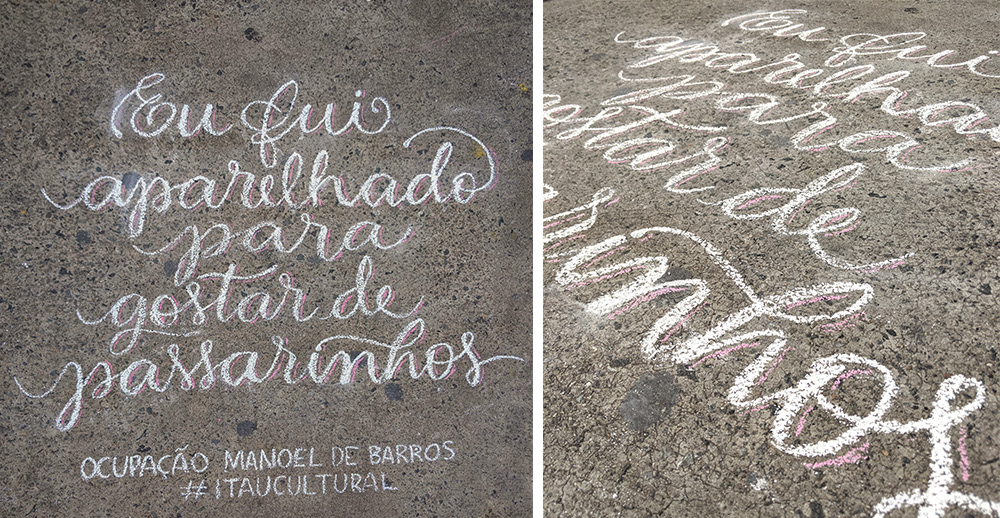 Eu fui
aparelhado
para
gostar de
passarinhos
OCUPAÇÃO MANOEL DE BARROS
#ITAUCULTURAL
Eu fui
aparelhado
para
gostar de
passarinhos